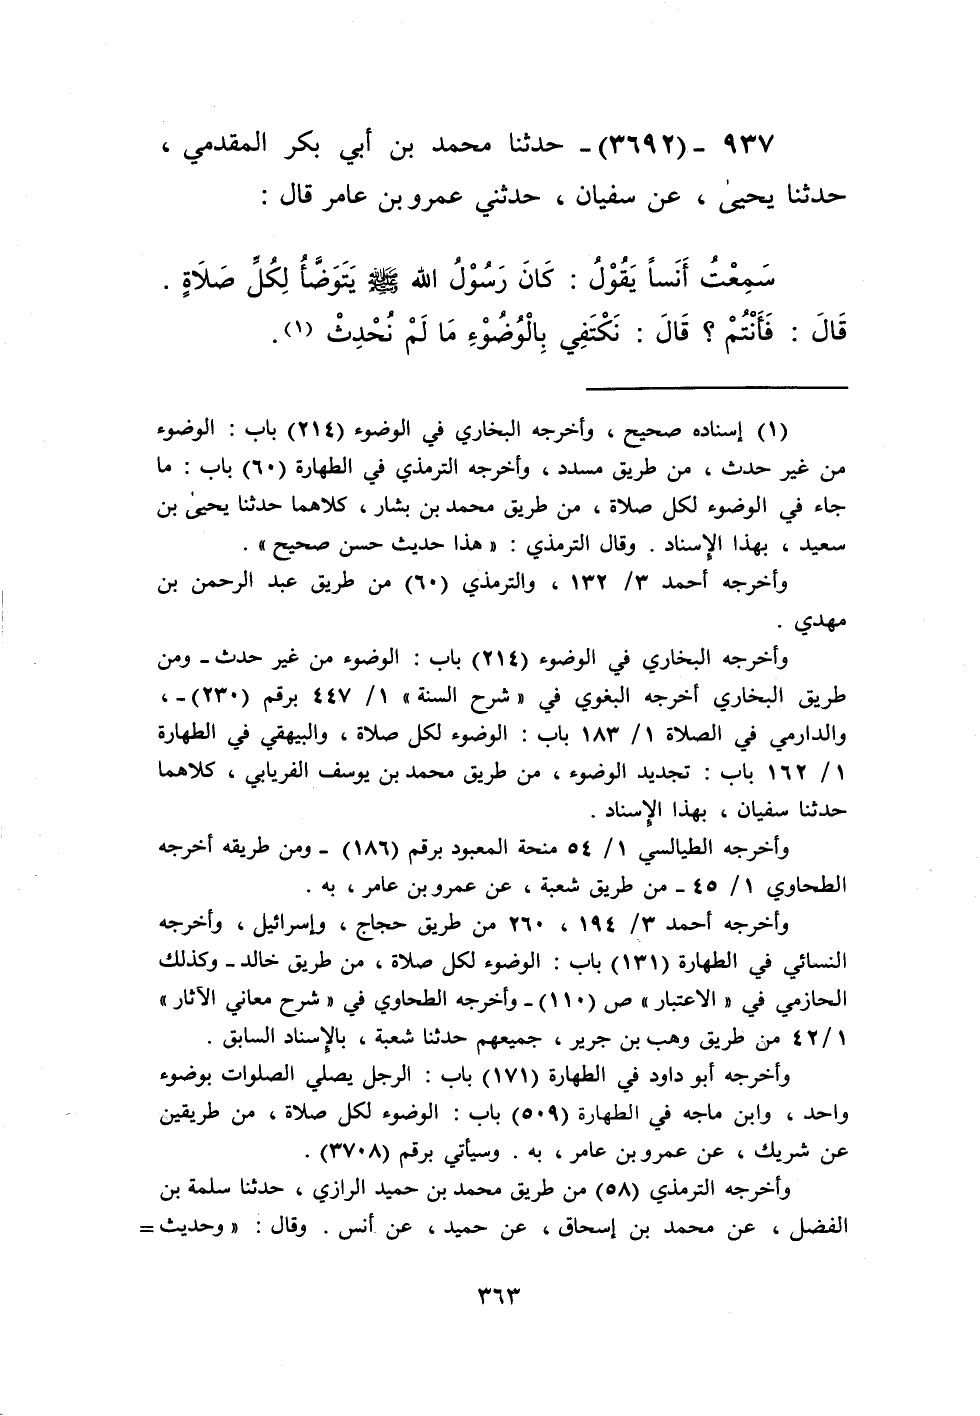 ٩٣٧ ـ (٣٦٩٢) ـ حدثنا محمد بن أبي بكر المقدمي ،
حدثنا يحيىٰ ، عن سفيان ، حدثني عمرو بن عامر قال :
سَمِعْتُ أَنَساً يَقُوْلُ : كَانَ رَسُوْلُ الله ﷺ يَتَوَضَّأُ لِكُلِّ صَلَاةٍ .
قَالَ : فَأَنْتُمْ ؟ قَالَ : نَكْتَفِي بِالْوُضُوْءِ مَا لَمْ نُحْدِثْ (١).
(١) إسناده صحيح ، وأخرجه البخاري في الوضوء (٢١٤) باب : الوضوء
من غير حدث ، من طريق مسدد ، وأخرجه الترمذي في الطهارة (٦٠) باب : ما
جاء في الوضوء لكل صلاة ، من طريق محمد بن بشار ، كلاهما حدثنا يحيىٰ بن
سعيد ، بهذا الإسناد . وقال الترمذي : « هذا حديث حسن صحيح » .
وأخرجه أحمد ٣/ ١٣٢ ، والترمذي (٦٠) من طريق عبد الرحمن بن
مهدي .
وأخرجه البخاري في الوضوء (٢١٤) باب : الوضوء من غير حدث ـ ومن
طريق البخاري أخرجه البغوي في « شرح السنة » ١/ ٤٤٧ برقم (٢٣٠) ـ ،
والدارمي في الصلاة ١/ ١٨٣ باب : الوضوء لكل صلاة ، والبيهقي في الطهارة
١/ ١٦٢ باب : تجديد الوضوء ، من طريق محمد بن يوسف الفريابي ، كلاهما
حدثنا سفيان ، بهذا الإسناد .
وأخرجه الطيالسي ١/ ٥٤ منحة المعبود برقم (١٨٦) ـ ومن طريقه أخرجه
الطحاوي ١/ ٤٥ ـ من طريق شعبة ، عن عمرو بن عامر ، به .
وأخرجه أحمد ٣/ ١٩٤ ، ٢٦٠ من طريق حجاج ، وإسرائيل ، وأخرجه
النسائي في الطهارة (١٣١) باب : الوضوء لكل صلاة ، من طريق خالد ـ وكذلك
الحازمي في « الاعتبار » ص (١١٠) ـ وأخرجه الطحاوي في « شرح معاني الآثار »
٤٢/١ من طريق وهب بن جرير ، جميعهم حدثنا شعبة ، بالإسناد السابق .
وأخرجه أبو داود في الطهارة (١٧١) باب : الرجل يصلي الصلوات بوضوء
واحد ، وابن ماجه في الطهارة (٥٠٩) باب : الوضوء لكل صلاة ، من طريقين
عن شريك ، عن عمرو بن عامر ، به . وسيأتي برقم (٣٧٠٨) .
وأخرجه الترمذي (٥٨) من طريق محمد بن حميد الرازي ، حدثنا سلمة بن
الفضل ، عن محمد بن إسحاق ، عن حميد ، عن أنس . وقال : « وحديث =
٣٦٣